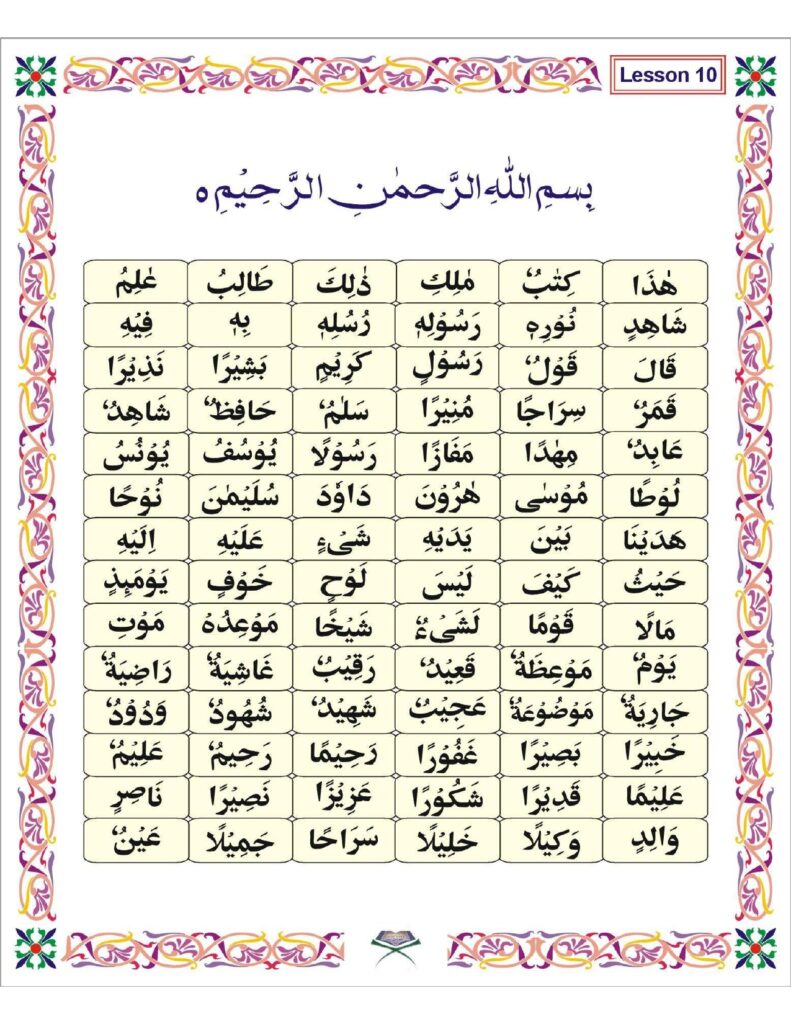 Lesson 10
بِسۡمِ اللّٰهِ الرَّحۡمٰنِ الرَّحِيۡمِ ٥
هٰذَا كِتٰبٌ مٰلِكِ ذٰلِكَ طَالِبُ عٰلِمُ
شَاهِدٍ نُوۡرِهٖ رَسُوۡلِهٖ رُسُلِهٖ بِهٖ فِيۡهِ
قَالَ قَوۡلٌ رَسُوۡلٍ كَرِيۡمٍ بَشِيۡرًا نَذِيۡرًا
قَمَرٌ سِرَاجًا مُنِيۡرًا سَلٰمٌ حَافِظٌ شَاهِدٌ
عَابِدٌ مِهٰدًا مَفَازًا رَسُوۡلًا يُوۡسُفُ يُوۡنُسُ
لُوۡطًا مُوۡسٰى هٰرُوۡنَ دَاوٗدَ سُلَيۡمٰنَ نُوۡحًا
هَدَيۡنَا بَيۡنَ يَدَيۡهِ شَىۡءٍ عَلَيۡهِ اِلَيۡهِ
حَيۡثُ كَيۡفَ لَيۡسَ لَوۡحٍ خَوۡفٍ يَوۡمَئِذٍ
مَالًا قَوۡمًا لَشَىۡءٌ شَيۡخًا مَوۡعِدُهٗ مَوۡتِ
يَوۡمٌ مَوۡعِظَةٌ قَعِيۡدٌ رَقِيۡبٌ غَاشِيَةٌ رَاضِيَةٌ
جَارِيَةٌ مَوۡضُوۡعَةٌ عَجِيۡبٌ شَهِيۡدٌ شُهُوۡدٌ وَدُوۡدٌ
خَبِيۡرًا بَصِيۡرًا غَفُوۡرًا رَحِيۡمًا رَحِيۡمٌ عَلِيۡمٌ
عَلِيۡمًا قَدِيۡرًا شَكُوۡرًا عَزِيۡزًا نَصِيۡرًا نَاصِرٍ
وَالِدٍ وَكِيۡلًا خَلِيۡلًا سَرَاحًا جَمِيۡلًا عَيۡنٌ